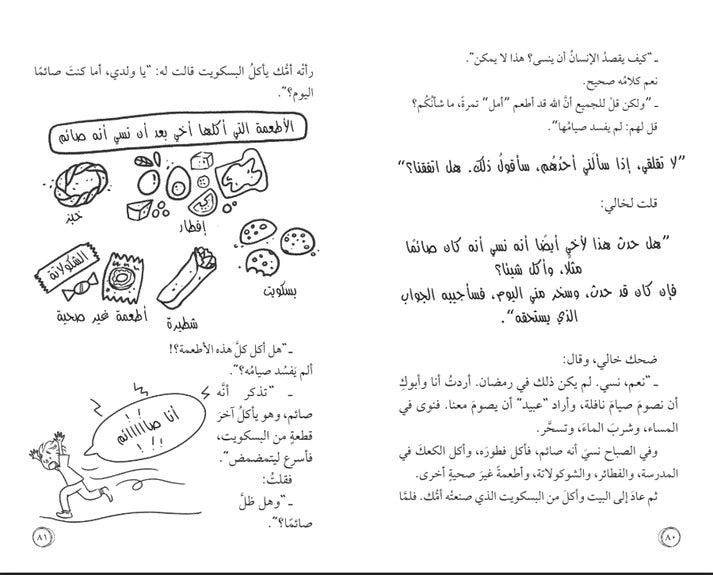 ـ "كيف يقصدُ الإنسانُ أن ينسى؟ هذا لا يمكن".
نعم كلامُه صحيح.
ـ "ولكن قلْ للجميع أنَّ الله قد أطعم "أمل" تمرةً، ما شأنُكُم؟
قل لهم: لم يفسد صيامُها".
"لا تقلقي، إذا سألني أحدُهُم، سأقولُ ذلك. هل اتفقنا؟"
قلت لخالي:
"هل حدث هذا لأخي أيضًا أنه نسي أنه كان صائمًا
مثلًا، وأكل شيئًا؟
فإن كان قد حدث، وسخر مني اليوم، فسأجيبه الجواب
الذي يستحقه".
ضحك خالي، وقال:
ـ "نعم، نسي. لم يكن ذلك في رمضان. أردتُ أنا وأبوكِ
أن نصومَ صيامَ نافلة، وأراد "عبيد" أن يصومَ معنا. فنوى في
المساء، وشربَ الماءَ، وتسحَّر.
وفي الصباح نسيَ أنه صائم، فأكل فطورَه، وأكل الكعكَ في
المدرسة، والفطائر، والشوكولاتة، وأطعمةً غيرَ صحيةٍ أخرى.
ثم عادَ إلى البيت وأكلَ من البسكويت الذي صنعتْه أمُّك. فلمَّا
٨٠
رأته أمُّك يأكلُ البسكويت قالت له: "يا ولدي، أما كنتَ صائمًا
اليوم؟".
الأطعمة التي أكلها أخي بعد أن نسي أنه صائم
خبز
إفطار
بسكويت
الشكولاتة
أطعمة غير صحية
شطيرة
ـ "هل أكل كلَّ هذه الأطعمة؟!
ألم يَفسُد صيامُه؟".
ـ "تذكر أنَّه
صائم، وهو يأكلُ آخرَ
قطعةٍ من البسكويت،
فأسرع ليتمضمض".
فقلتُ:
ـ "وهل ظلَّ
صائمًا؟".
أنا صااااائم
!!!
٨١